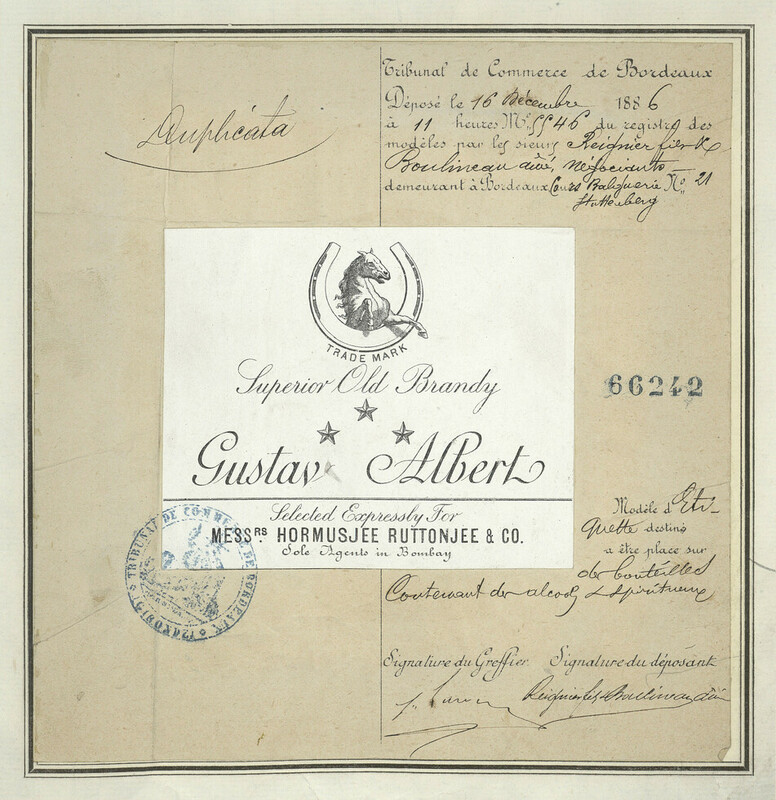 Duplicata
Tribunal de Commerce de Bordeaux
Déposé le 16 Décembre 1886
à 11 heures Me. 5546 du registre des
modèles par les sieurs Reignier fils &
Boulineau aîné, négociants
demeurant à Bordeaux Cours Balguerie No. 21
Stuttenberg
TRADE MARK
Superior Old Brandy
Gustav Albert
Selected Expressly For
MESSRS. HORMUSJEE RUTTONJEE & CO.
Sole Agents in Bombay
66242
Modèle d'Eti-
quette destiné
a être place sur
des bouteilles
Contenant des alcools & spiritueux
TRIBUNAL DE COMMERCE DE BORDEAUX
Signature du Greffier Signature du déposant
Reignier fils & Boulineau aîné